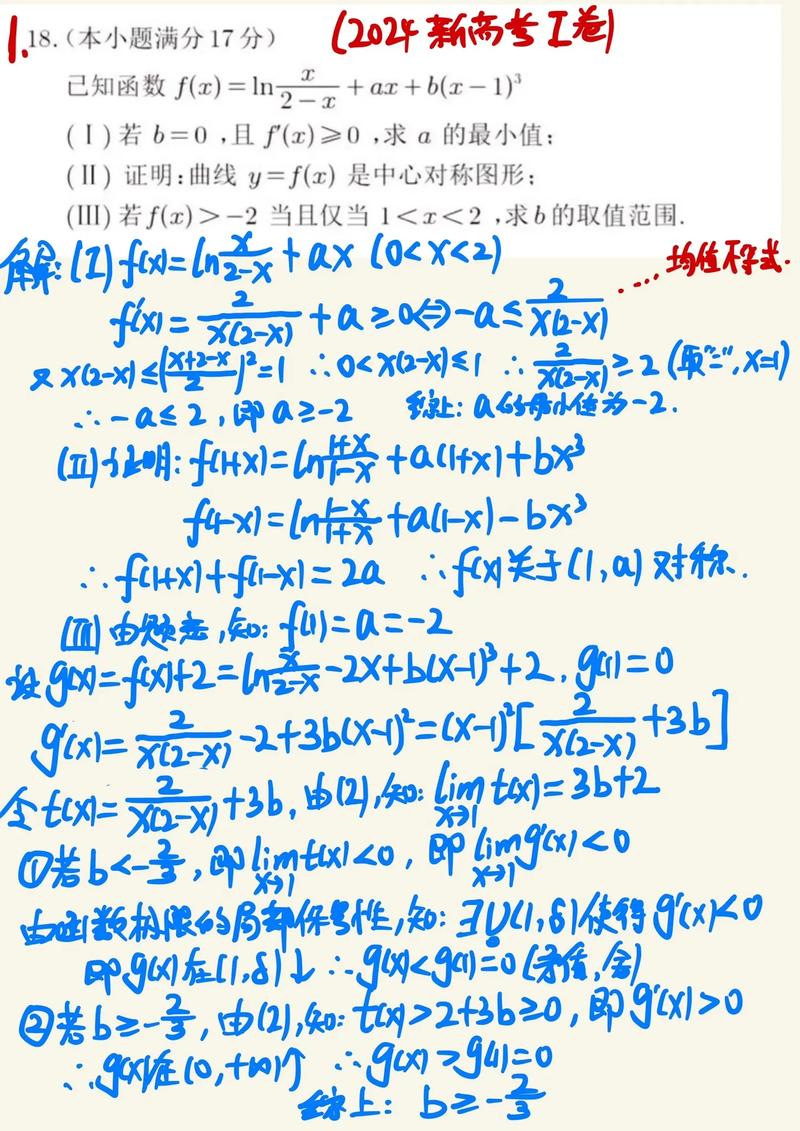 1. 18.(本小题满分17分) (2024 新高考 I 卷)
已知函数 f(x)=ln x/(2−x) +ax+b(x−1)³
(Ⅰ)若 b=0 ,且 f′(x)≥0 ,求 a 的最小值;
(Ⅱ) 证明:曲线 y=f(x) 是中心对称图形;
(Ⅲ)若 f(x)>−2 当且仅当 1<x<2 ,求 b 的取值范围.
解: (I) f(x)=ln x/(2-x) + ax (0<x<2) ……均值不等式.
f'(x)= 2/(x(2-x)) + a ≥0⇔-a≤ 2/(x(2-x))
又 x(2-x)≤((x+2-x)/2)²=1 ∴0<x(2-x)≤1 ∴ 2/(x(2-x)) ≥2 (取"=", x=1)
∴ -a≤2, 即 a≥-2 综上: a 的最小值为-2.
(II) 证明: f(1+x)=ln (1+x)/(1-x) +a(1+x)+bx³
f(1-x)=ln (1-x)/(1+x) +a(1-x)-bx³
∴ f(1+x)+f(1-x)=2a ∴f(x)关于(1,a)对称.
(III) 由题意,知: f(1)=a=-2
设 g(x)=f(x)+2=ln x/(2-x) -2x+b(x-1)³+2, g(1)=0
g'(x)= 2/(x(2-x)) -2+3b(x-1)²=(x-1)²[ 2/(x(2-x)) +3b]
令 t(x)= 2/(x(2-x)) +3b, 由(2),知: lim x→1 t(x)=3b+2
①若 b<-2/3, 即 lim x→1 t(x)<0, 即 lim x→1 g'(x)<0
由函数极限的局部保号性,知: ∃U(1,δ)使得 g'(x)<0
即 g(x)在(1,δ)↓ ∴g(x)<g(1)=0 (矛盾,舍)
②若 b≥-2/3, 由(2),知: t(x)>2+3b≥0, 即 g'(x)>0
∴g(x)在(0,+∞)↑ ∴g(x)>g(1)=0
综上: b≥-2/3